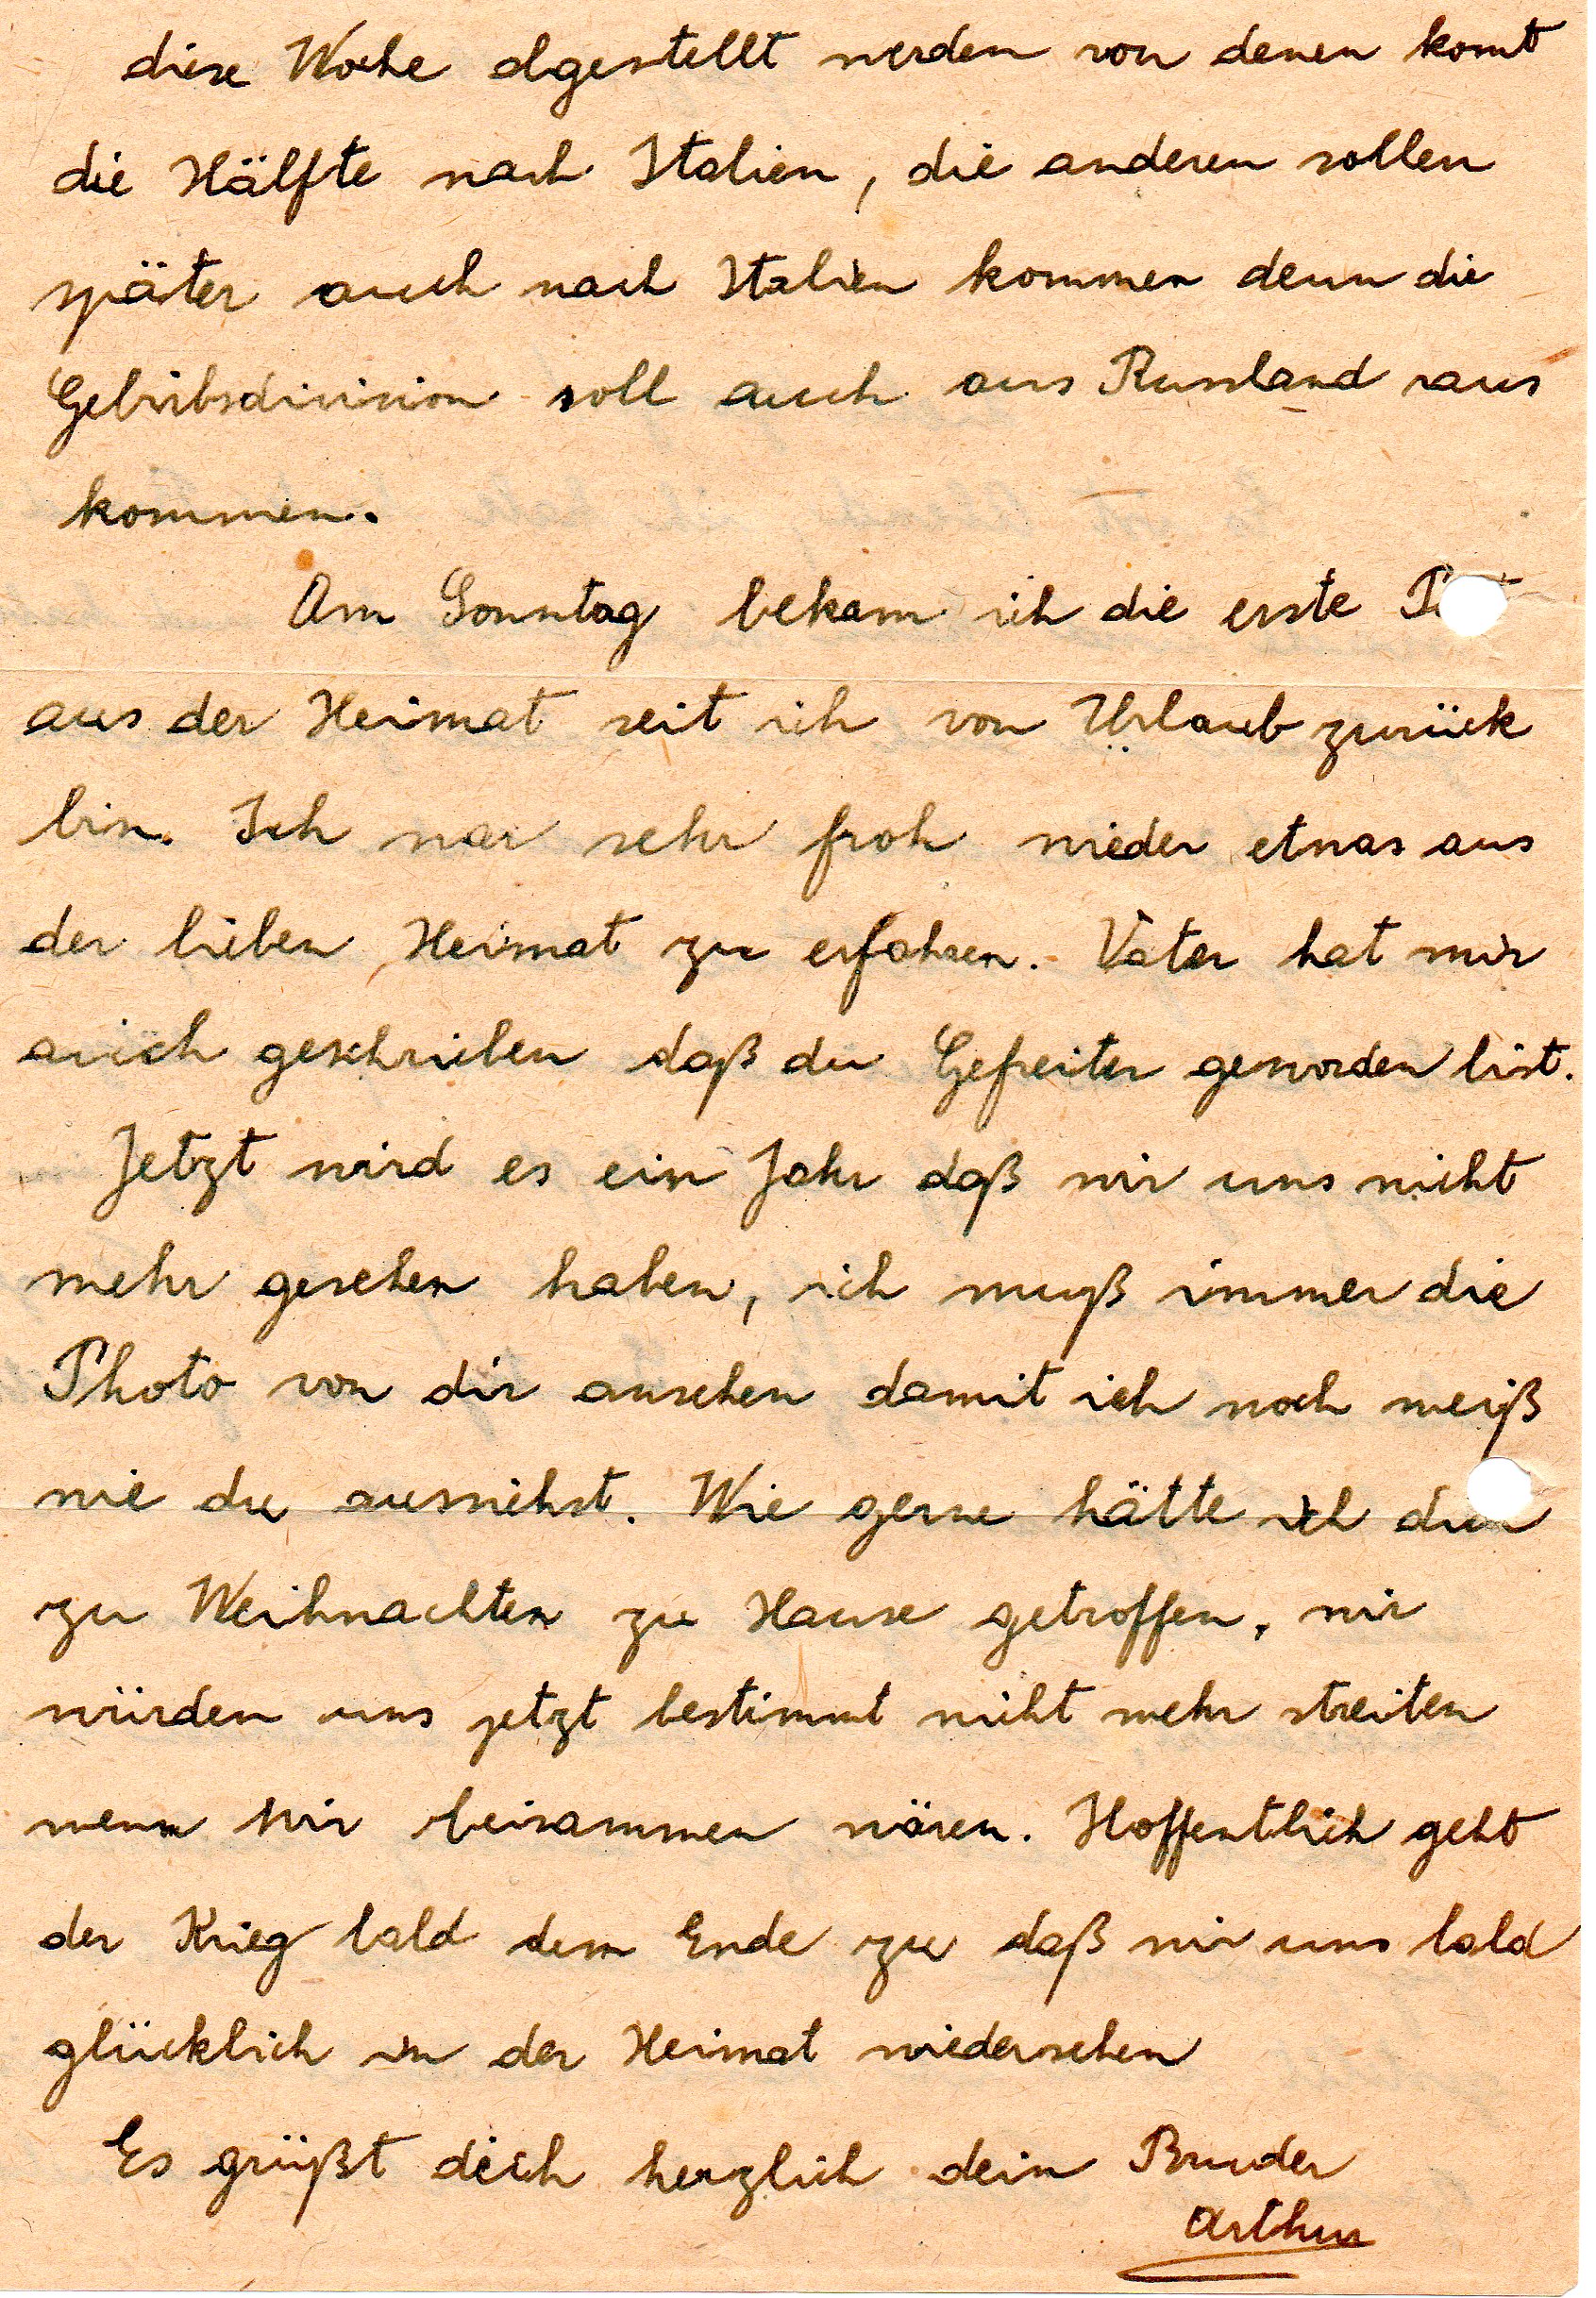 diese Woche abgestellt werden von denen komt
die Hälfte nach Italien, die anderen sollen
später auch nach Italien kommen denn die
Gebirbsdivision soll auch aus Russland raus
kommen.
Am Sonntag bekam ich die erste
aus der Heimat seit ich von Urlaub zurück
bin. Ich war sehr froh wieder etwas aus
der lieben Heimat zu erfahren. Vater hat mir
auch geschrieben daß du Gefreiter geworden bist.
Jetzt wird es ein Jahr daß wir uns nicht
mehr gesehen haben, ich muß immer die
Photo von dir ansehen damit ich noch weiß
wie du aussiehst. Wie gerne hätte ich
zu Weihnachten zu Hause getroffen, wir
würden uns jetzt bestimmt nicht mehr streiten
wenn wir beisammen wären. Hoffentlich geht
der Krieg bald dem Ende zu daß wir uns bald
glücklich in der Heimat wiedersehen
Es grüßt dich herzlich dein Bruder
Arthur